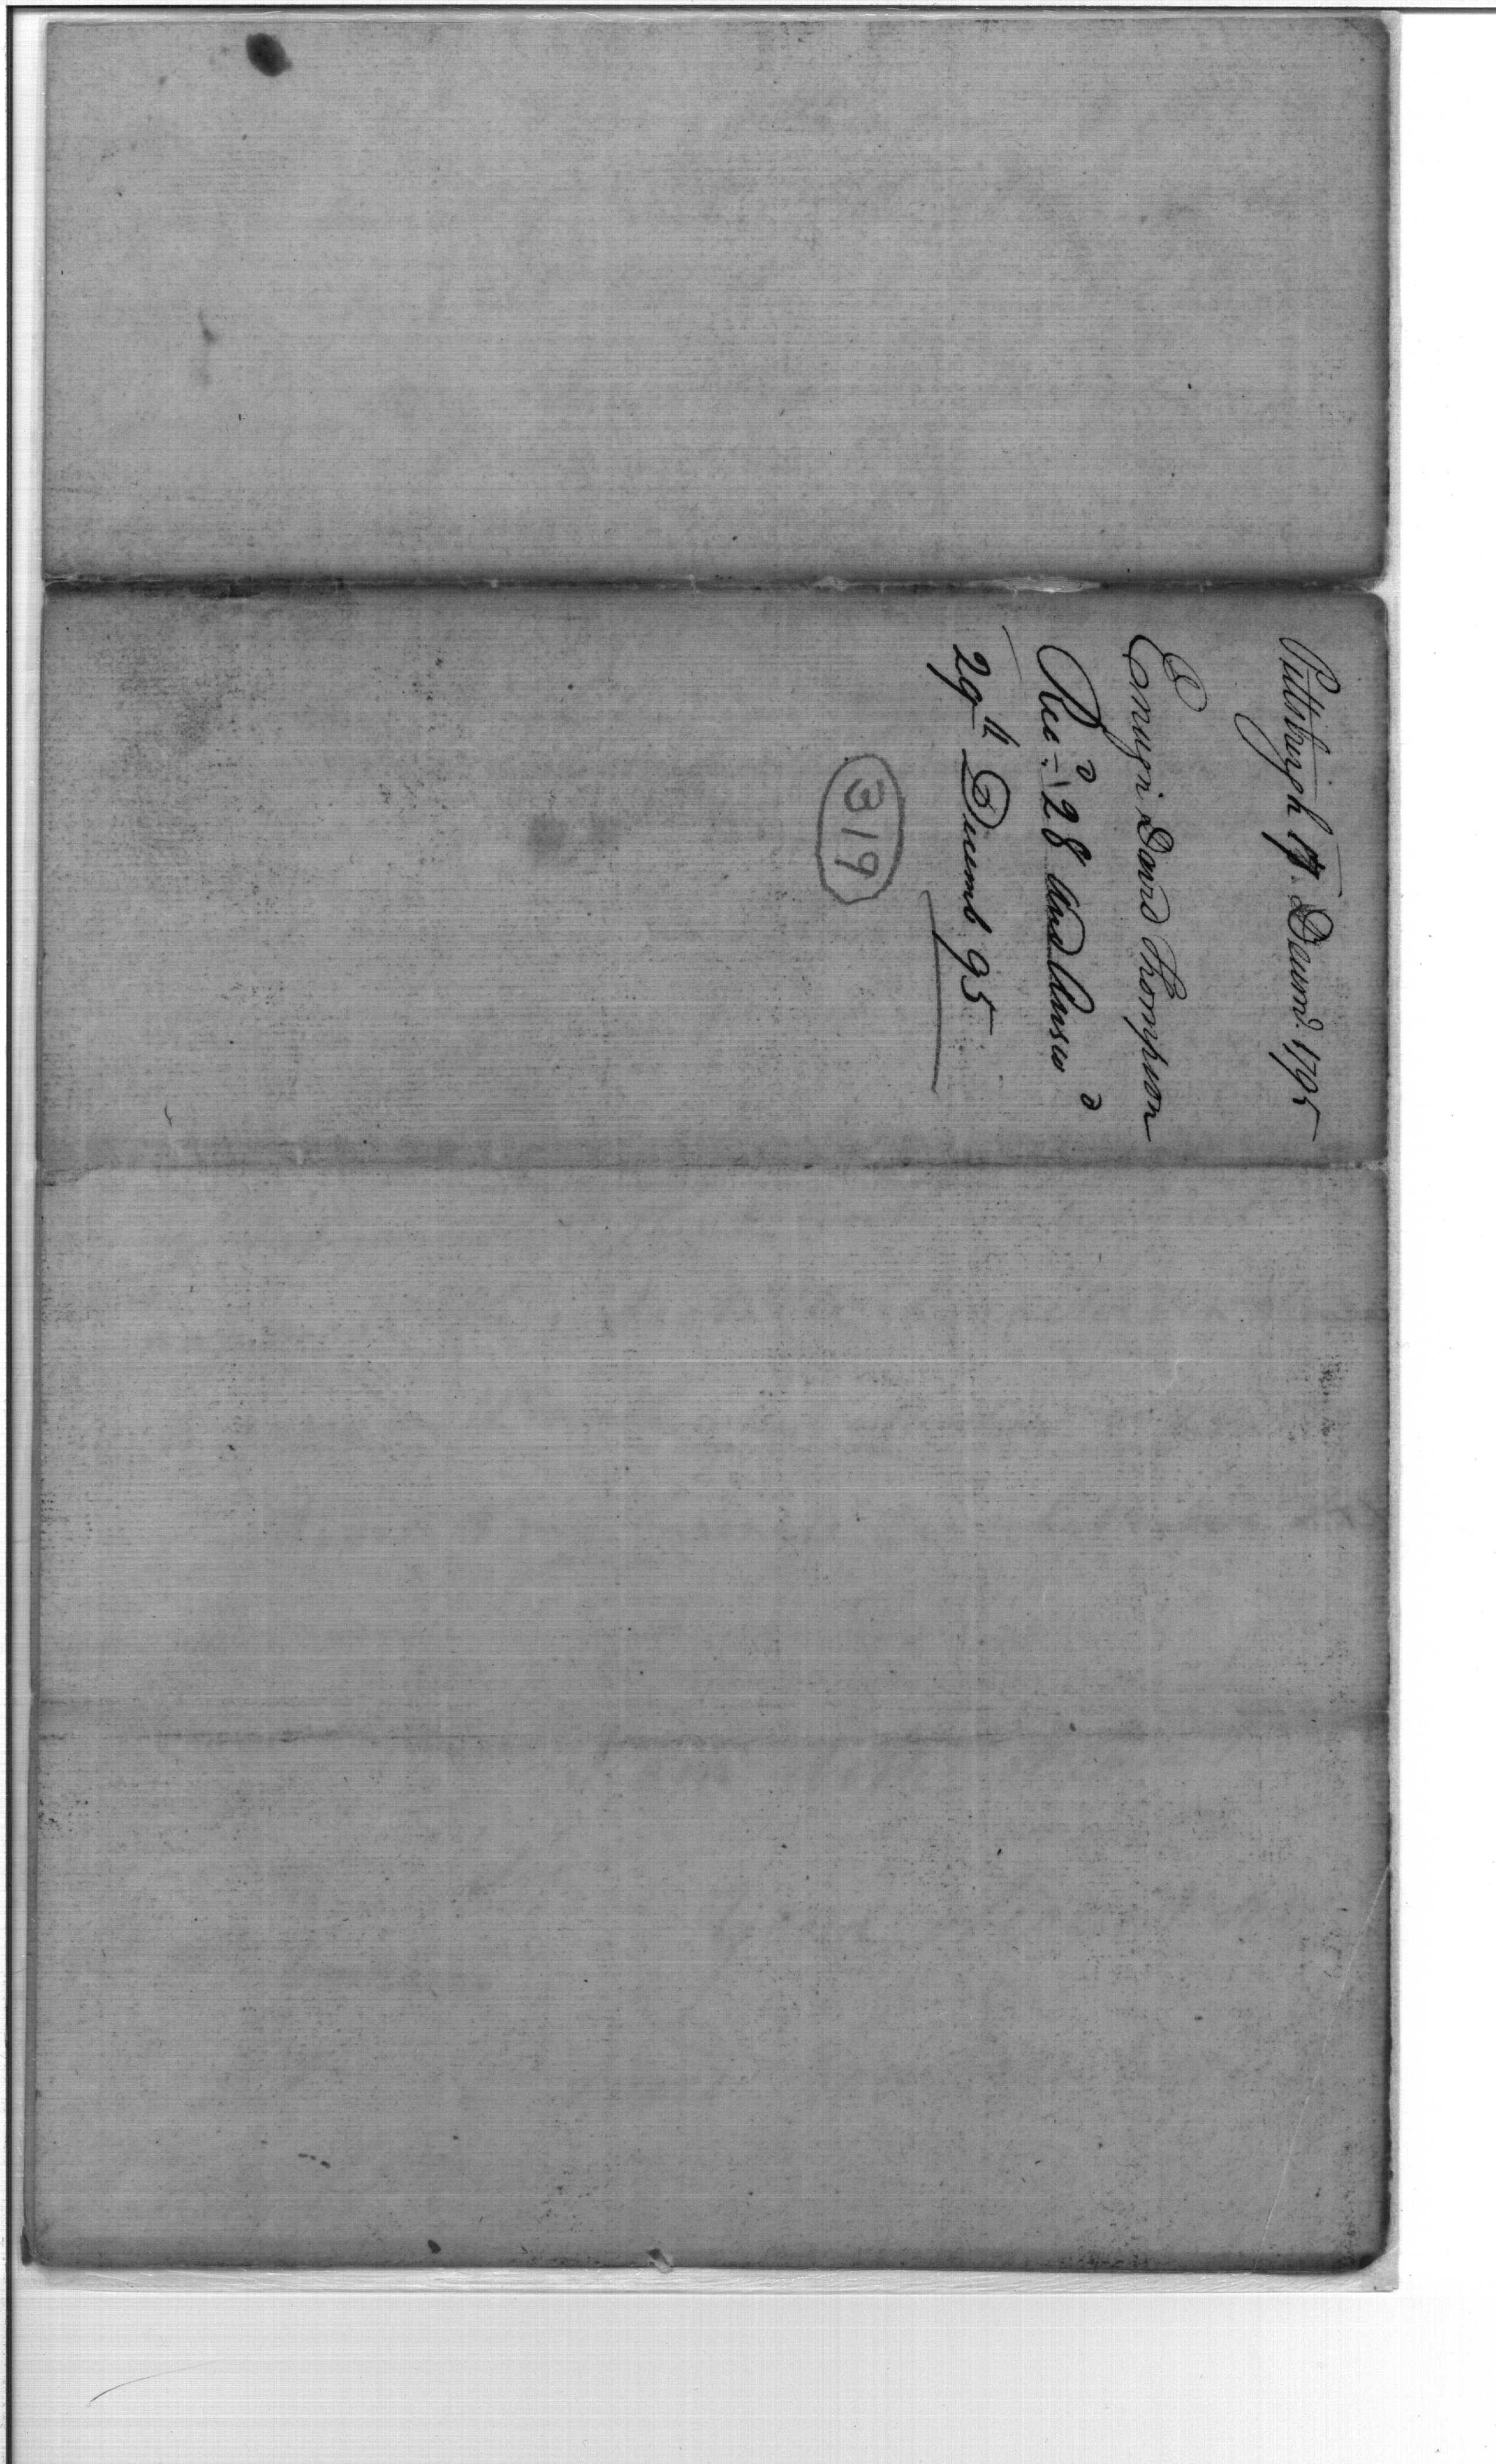 Pittsburgh 17 Decemb. 1795
Ensign David Thompson
Rec.d 28 And Answd
29th Decemb 95
319